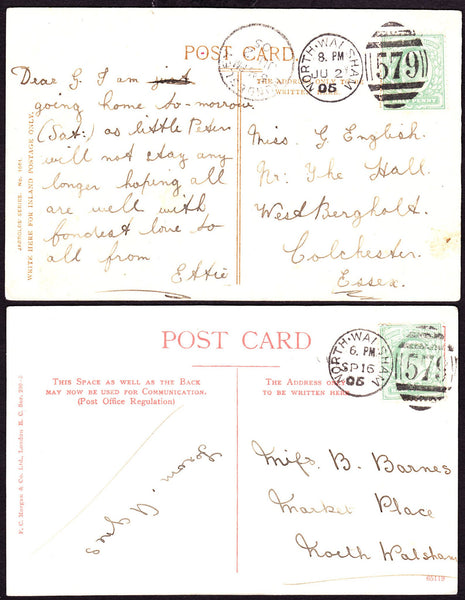 POST CARD
NORTH-WALSHAM
8. PM
JU 2
05
579
PENNY
THE ADDRESS ONLY TO
WRITTEN
JARROLDS' SERIES. No.
WRITE HERE FOR INLAND POSTAGE ONLY.
Dear G. I am just
going home to-morrow
(Sat:) as little Peter
will not stay any
longer hoping all
are well with
fondest love to
all from
Ettie
Miss G English.
Nr: The Hall.
West Bergholt.
Colchester.
Essex.
POST CARD
NORTH-WALSHAM
6. PM
SP 16
05
579
THIS SPACE AS WELL AS THE BACK
MAY NOW BE USED FOR COMMUNICATION.
(Post Office Regulation)
THE ADDRESS ONLY
TO BE WRITTEN HERE
F. C. Morgan & Co. Ltd., London E. C. Ser.
from
Miss B. Barnes
Market Place
North Walsham